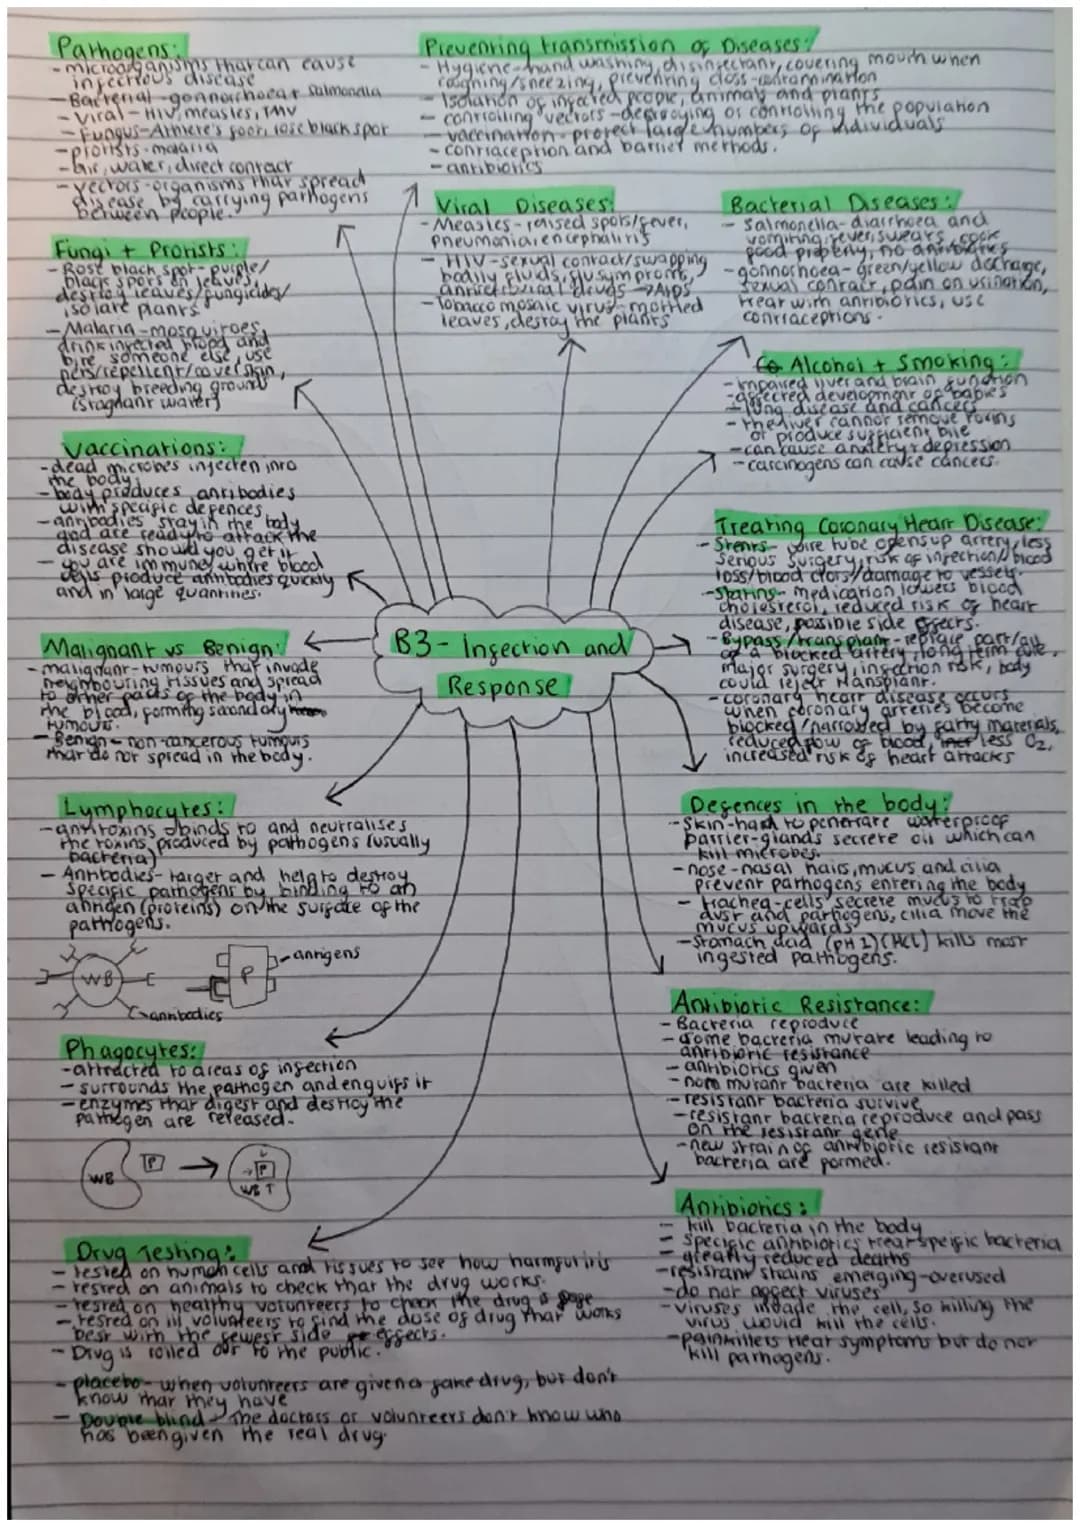 Pathogens:
- microorganisms that can cause
infectious disease
- Bacterial - gonnorhoea + salmonella
- Viral - HIV, measles, TMV
- Fungus - Athlete's foot, rose black spot
- protists - malaria
- air, water, direct contact
- vectors - organisms that spread
disease by carrying pathogens
between people.
Preventing transmission of Diseases:
- Hygiene - hand washing, disinfectant, covering mouth when
coughing/sneezing, preventing cross-contamination
- Isolation of infected people, animals and plants
- controlling vectors - destroying or controlling the population
- vaccination - protect large numbers of individuals
- contraception and barrier methods.
- antibiotics
Viral Diseases:
- Measles - raised spots/fever,
pneumonia, encephalitis
- HIV - sexual contact/swapping
bodily fluids, flu symptoms,
antiretroviral drugs → AIDS
- Tobacco mosaic virus - mottled
leaves, destroy the plants
Bacterial Diseases:
- Salmonella - diarrhoea and
vomiting, fever, sweats, cook
food properly, no antibiotics
- gonnorhoea - green/yellow discharge,
sexual contact, pain on urination,
treat with antibiotics, use
contraceptions.
Fungi + Protists:
- Rose black spot - purple/
black spots on leaves,
destroy leaves/fungicides/
isolate plants
- Malaria - mosquitoes,
drink infected blood and
bite someone else, use
nets/repellent/cover skin,
destroy breeding ground
(stagnant water)
Alcohol + Smoking:
- impaired liver and brain function
- affected development of babies
- lung disease and cancers
- the liver cannot remove toxins
or produce sufficient bile
- can cause anxiety + depression
- carcinogens can cause cancers.
Vaccinations:
- dead microbes injecten into
the body
- body produces antibodies
with specific defences
- antibodies stay in the body
and are ready to attack the
disease should you get it
- you are immune, where blood
cells produce antibodies quickly
and in large quantities.
Treating Coronary Heart Disease:
- Stents - wire tube opens up artery, less
serious surgery, risk of infection/blood
loss/blood clots/damage to vessels.
- Statins - medication lowers blood
cholesterol, reduced risk of heart
disease, possible side effects.
- Bypass/transplant - replace part/all
of a blocked artery, long term cure,
major surgery, infection risk, body
could reject transplant.
- coronary heart disease occurs
when coronary arteries become
blocked/narrowed by fatty materials,
reduced flow of blood, less O2,
increased risk of heart attacks
B3 - Infection and
Response
Malignant vs Benign:
- malignant - tumours that invade
neighbouring tissues and spread
to other parts of the body in
the blood, forming secondary
tumours.
- Benign - non-cancerous tumours
that do not spread in the body.
Lymphocytes:
- antitoxins binds to and neutralises
the toxins produced by pathogens (usually
bacteria)
- Antibodies - target and help to destroy
specific pathogens by binding to an
antigen (proteins) on the surface of the
pathogens.
WB
P
antigens
antibodies
Defences in the body:
- Skin - hard to penetrate waterproof
barrier - glands secrete oil which can
kill microbes.
- nose - nasal hairs, mucus and cilia
prevent pathogens entering the body
- trachea - cells secrete mucus to trap
dust and pathogens, cilia move the
mucus upwards
- Stomach acid (pH 2) (HCl) kills most
ingested pathogens.
Phagocytes:
- attracted to areas of infection
- surrounds the pathogen and engulfs it
- enzymes that digest and destroy the
pathogen are released.
WB
P
P
WBT
Antibiotic Resistance:
- Bacteria reproduce
- some bacteria mutate leading to
antibiotic resistance
- antibiotics given
- non mutant bacteria are killed
- resistant bacteria survive
- resistant bacteria reproduce and pass
on the resistant gene
- new strain of antibiotic resistant
bacteria are formed.
Antibiotics:
- kill bacteria in the body
- specific antibiotics treat speific bacteria
- greatly reduced deaths
- resistant strains emerging - overused
- do not affect viruses
- viruses invade the cell, so killing the
virus would kill the cells.
- painkillers treat symptoms but do not
kill pathogens.
Drug Testing:
- tested on human cells and tissues to see how harmful it is
- tested on animals to check that the drug works.
- tested on healthy volunteers to check the drug is safe
- tested on ill volunteers to find the dose of drug that works
best with the fewest side effects.
- Drug is rolled out to the public.
- placebo - when volunteers are given a fake drug, but don't
know that they have
- Double blind - The doctors or volunteers don't know who
has been given the real drug.